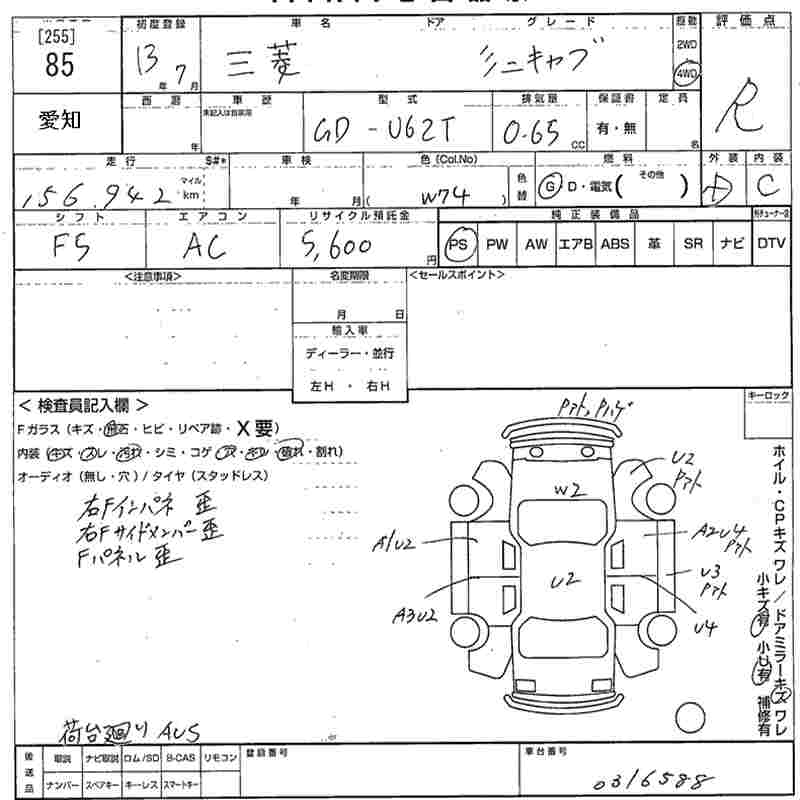 [255]
85
愛知
初度登録 車名 ドア グレード 駆動 評価点
13年 7月 三菱 ミニキャブ 2WD 4WD R
西暦 年 車歴 未記入は自家用 型式 排気量 保証書 定員
GD-U62T 0.65 CC 有・無 名
走行 S#* 車検 色(Col.No) 燃料 外装 内装
156,942 マイル km 年 月 ( W74 ) 色替 G D・電気( その他 ) D C
シフト エアコン リサイクル預託金 純正装備品
F5 AC 5,600円 PS PW AW エアB ABS 革 SR ナビ DTV
<注意事項> 名変期限 <セールスポイント>
月 日
輸入車
ディーラー・並行
左H ・ 右H
<検査員記入欄> キーロック
Fガラス(キズ・飛石・ヒビ・リペア跡・X要)
内装(キズ・スレ・汚れ・シミ・コゲ・穴・ネジ・破れ・割れ)
オーディオ(無し・穴)/タイヤ(スタッドレス)
右Fインパネ 歪
右Fサイドメンバー 歪
Fパネル 歪
W2
U2
U2
A1U2
A3U2
A2U4
U3
U4
ホイル・CPキズ ワレ/ドアミラーキズ ワレ
小キズ有 小凹有 補修有
荷台廻り AUS
後送品 取説 ナビ取説 ロム/SD B-CAS リモコン 登録番号 車台番号
ナンバー スペアキー キーレス スマートキー 0316588